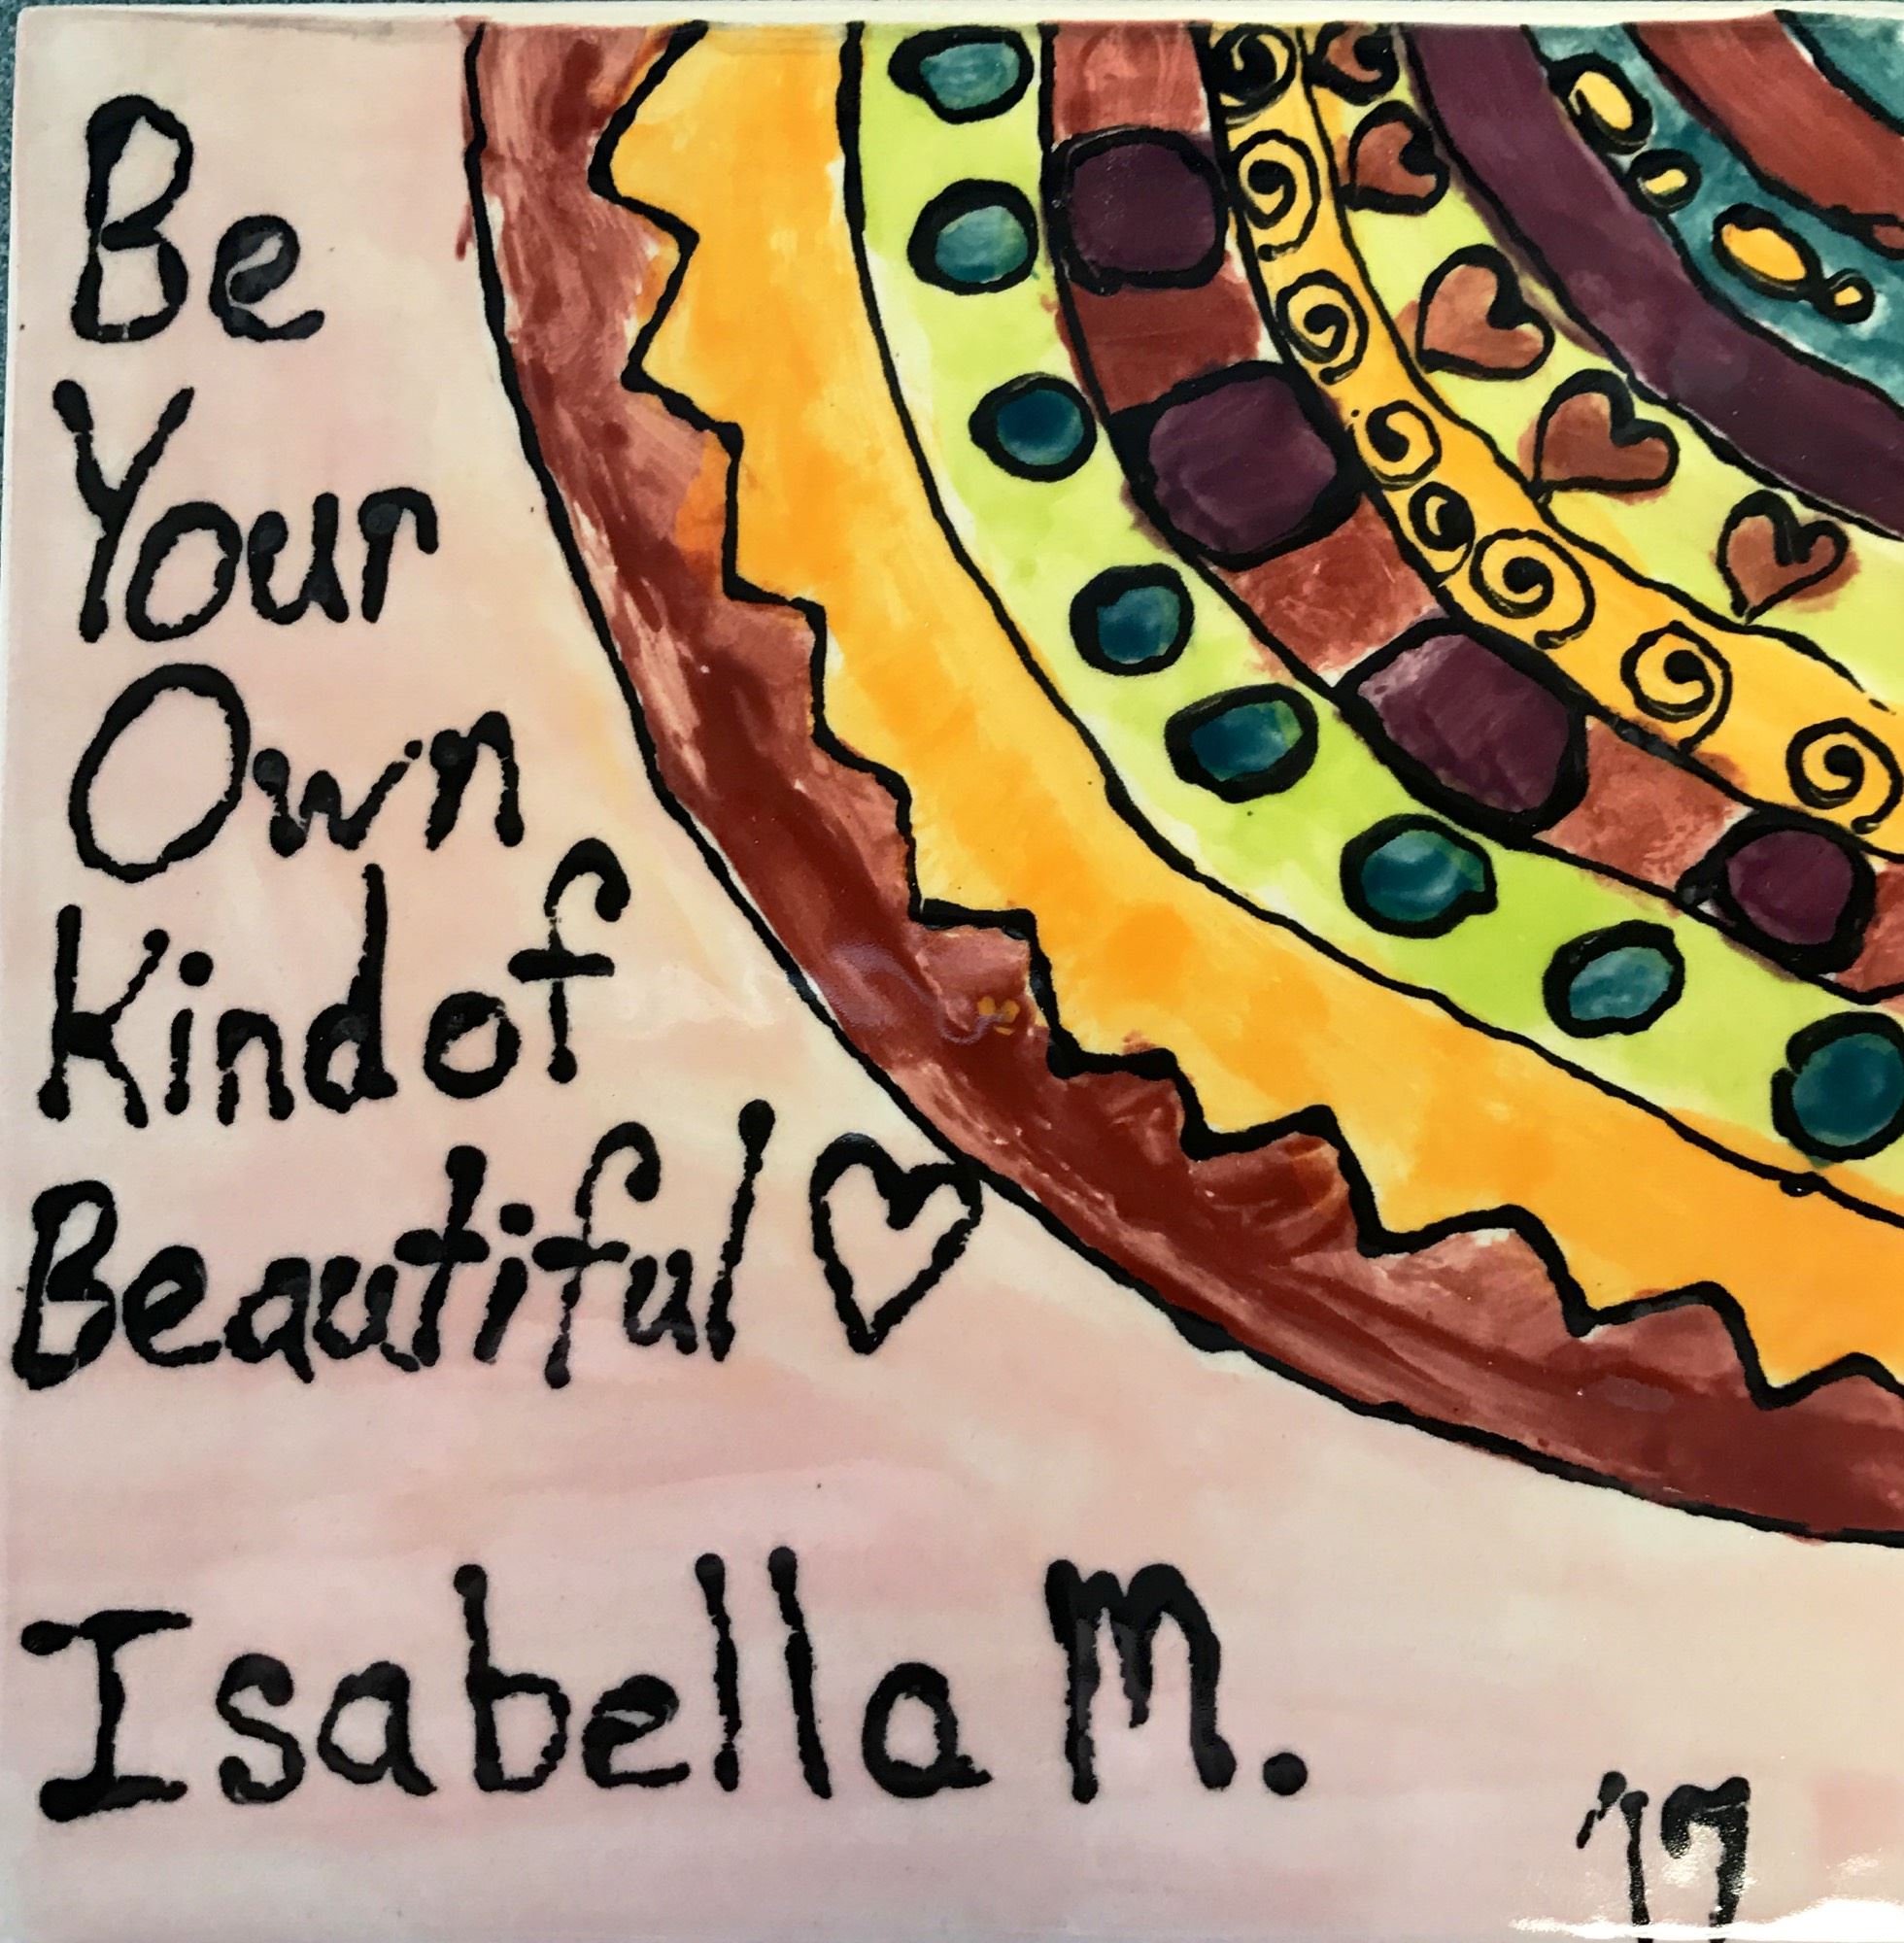 Be
Your
Own
Kind of
Beautiful ♡
Isabella M.
'17